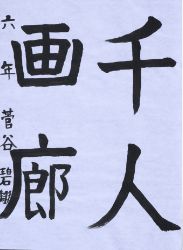 千人
画廊
六年 菅谷 碧